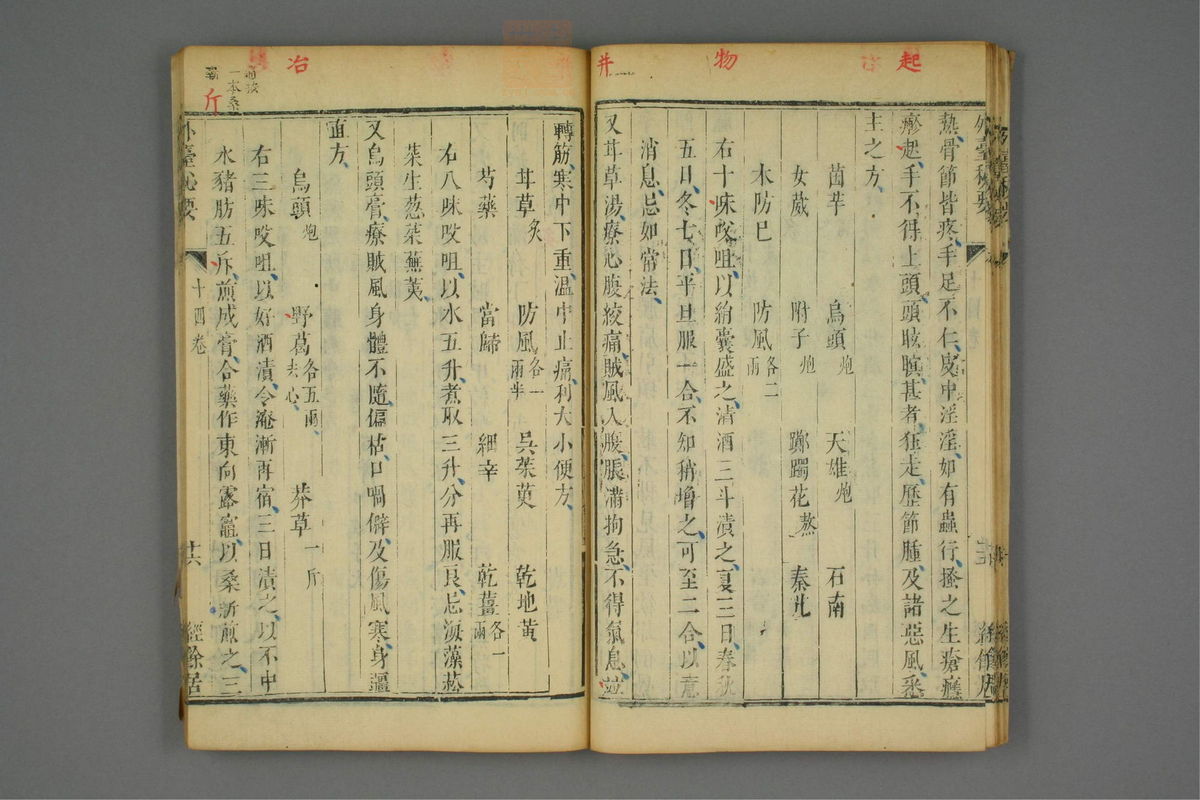 起
物
井
外臺秘要
熱骨節皆疼手足不仁皮中淫淫如有蟲行搔之生瘡癮
疹起手不得上頭頭眩瞑甚者狂走歷節腫及諸惡風悉
主之方
茵芋 烏頭炮 天雄炮 石南
女葳 附子炮 躑躅花蒸 秦艽
木防巳 防風各二兩
右十味㕮咀以絹囊盛之清酒三斗漬之夏三日春秋
五日冬七日平旦服一合不知稍增之可至二合以意
消息忌如常法
又甘草湯療心腹絞痛賊風入腹脹滿拘急不得氣息並
轉筋寒中下重溫中止痛利大小便方
甘草炙 防風各一兩半 吳茱萸 乾地黃
芍藥 當歸 細辛 乾薑各一兩
右八味㕮咀以水五升煮取三升分再服良忌海藻菘
菜生葱菜蕪荑
又烏頭膏療賊風身體不隨偏枯口喎僻及傷風寒身彊
直方
烏頭炮 野葛各五兩去心 莽草一斤
右三味㕮咀以好酒漬令淹漸再宿三日漬之以不中
水豬肪五斤煎成膏合藥作東向露竈以桑薪煎之三
外臺祕要 十四卷 十六 經餘居
冶
一本桑
斤